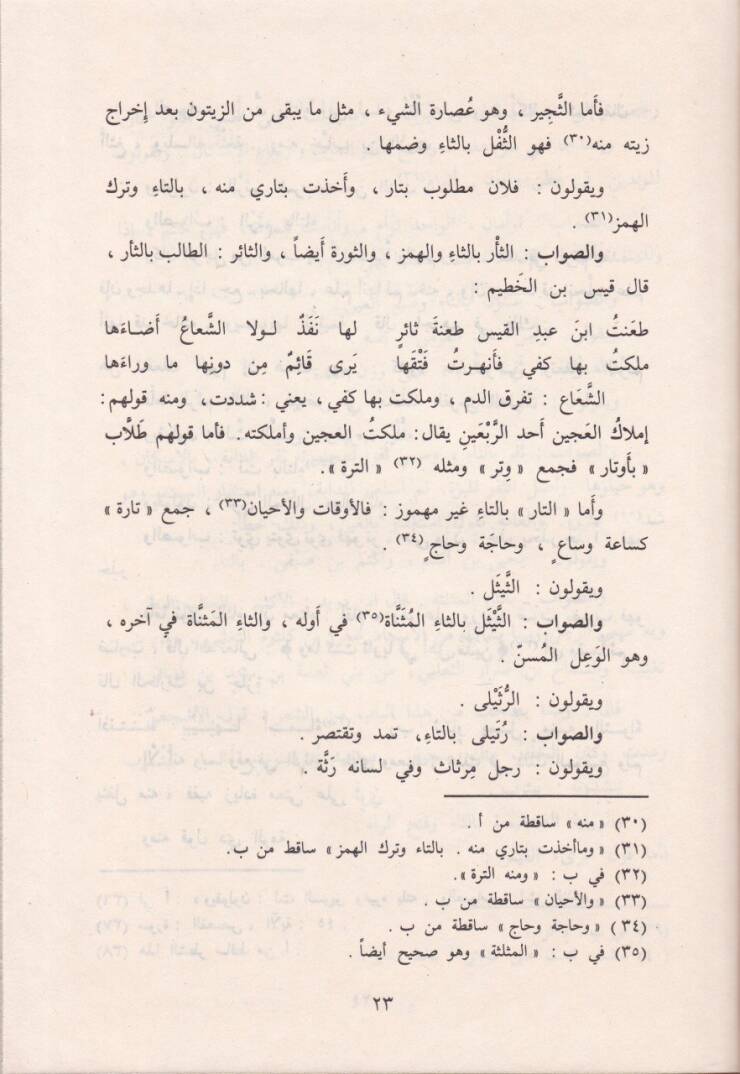 فأما الثَّجِير ، وهو عُصارة الشيء ، مثل ما يبقى من الزيتون بعد إخراج
زيته منه(٣٠) فهو الثُّفْل بالثاءِ وضمها .
ويقولون : فلان مطلوب بتار ، وأخذت بتاري منه ، بالتاءِ وترك
الهمز(٣١) .
والصواب : الثأْر بالثاءِ والهمز ، والثورة أَيضاً ، والثائر : الطالب بالثأر ،
قال قيس بن الخَطيم :
طعَنتُ ابنَ عبدِ القيس طعنةَ ثائرٍ لها نَفَذٌ لـولا الشَّعاعُ أضـاءَها
ملكتُ بها كفي فأَنهـرتُ فَتْقَها يَرى قَائِمٌ مِن دونِها ما وراءَها
الشَّعَاع : تفرق الدم ، وملكت بها كفي ، يعني : شددت ، ومنه قولهم :
إملاكُ العَجين أحد الرَّيْعَينِ يقال : ملكتُ العجين وأملكته . فأما قولهم طَلَّاب
« بأَوتار » فجمع « وِتر » ومثله (٣٢) « الترة » .
وأَما « التار » بالتاءِ غير مهموز : فالأوقات والأحيان(٣٣) ، جمع « تارة »
كساعة وساعٍ ، وحاجَة وحاجٍ(٣٤) .
ويقولون : الثَّيثَل .
والصواب : الثَّيْتَل بالثاءِ المُثَنَّاة(٣٥) في أَوله ، والتاءِ المَثناة في آخره ،
وهو الوَعِل المُسنّ .
ويقولون : الرُّثَيْلى .
والصواب : رُتَيلى بالتاءِ ، تمد وتقتصر .
ويقولون : رجل مِرثاث وفي لسانه رَثَّة .
(٣٠) « منه » ساقطة من أ .
(٣١) « وماأخذت بتاري منه . بالتاء وترك الهمز » ساقط من ب .
(٣٢) في ب : « ومنه الترة » .
(٣٣) « والأحيان » ساقطة من ب .
(٣٤) « وحاجة وحاج » ساقطة من ب .
(٣٥) في ب : « المثلثة » وهو صحيح أيضاً .
٢٣